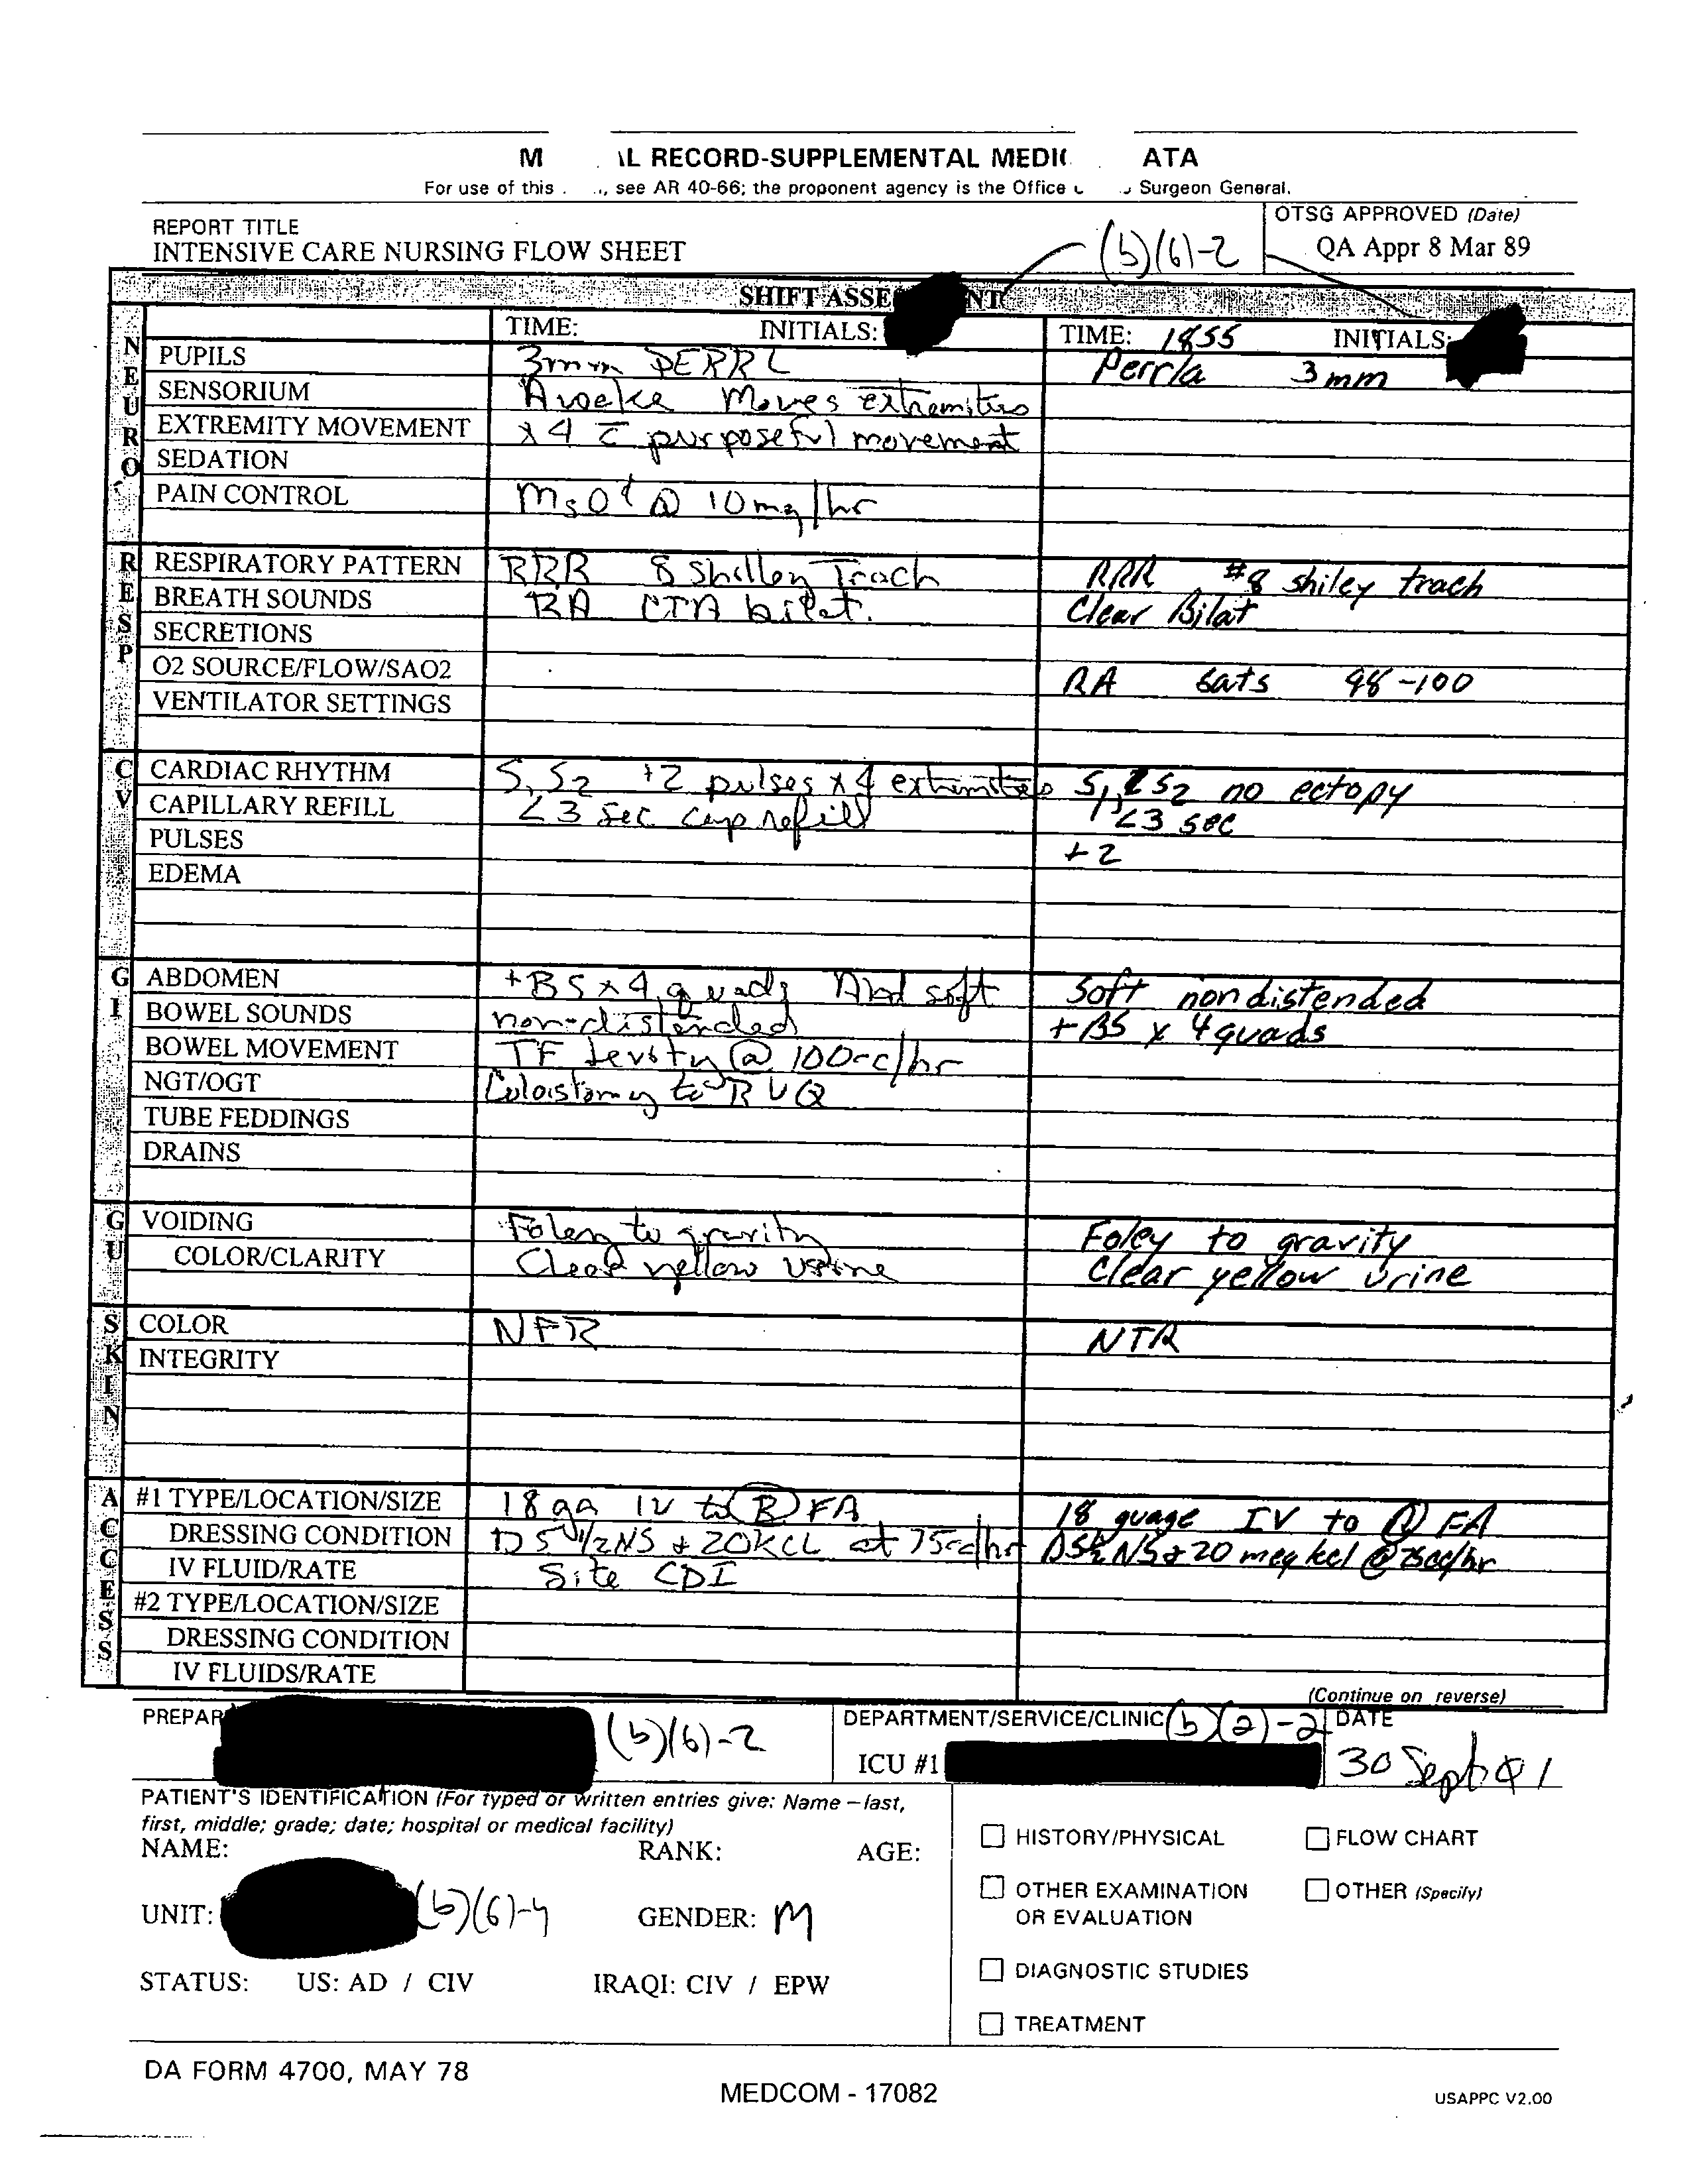 M   AL RECORD-SUPPLEMENTAL MEDIC   ATA
For use of this   , see AR 40-66; the proponent agency is the Office   Surgeon General.
REPORT TITLE
INTENSIVE CARE NURSING FLOW SHEET
(b)(6)-2
OTSG APPROVED (Date)
QA Appr 8 Mar 89
SHIFT ASSE NT
TIME: INITIALS: TIME: 1855 INITIALS:
NEURO
PUPILS 3mm PERRL Perrla 3mm
SENSORIUM Awake Moves extremities
EXTREMITY MOVEMENT x4 c̄ purposeful movement
SEDATION
PAIN CONTROL MsO4 @ 10mg/hr
RESP
RESPIRATORY PATTERN RRR 8 Shilley Trach RRR #8 shiley trach
BREATH SOUNDS RA CTA bilat. Clear Bilat
SECRETIONS
O2 SOURCE/FLOW/SAO2 RA sats 98-100
VENTILATOR SETTINGS
CV
CARDIAC RHYTHM S1S2 +2 pulses x4 extremities S1, S2 no ectopy
CAPILLARY REFILL <3 sec cap refill <3 sec
PULSES +2
EDEMA
GI
ABDOMEN +BS x4 quads Abd soft Soft nondistended
BOWEL SOUNDS non-distended +BS x 4quads
BOWEL MOVEMENT TF Jevity @ 100cc/hr
NGT/OGT Colostomy to RUQ
TUBE FEDDINGS
DRAINS
GU
VOIDING Foley to gravity Foley to gravity
COLOR/CLARITY Clear yellow urine Clear yellow urine
SKIN
COLOR NFR NTR
INTEGRITY
ACCESS
#1 TYPE/LOCATION/SIZE 18 ga IV to (R) FA 18 guage IV to (R) FA
DRESSING CONDITION D5 1/2NS + 20KCL at 75cc/hr D5½NS + 20 meq kcl @ 75cc/hr
IV FLUID/RATE Site CDI
#2 TYPE/LOCATION/SIZE
DRESSING CONDITION
IV FLUIDS/RATE
(Continue on reverse)
PREPAR (b)(6)-2 DEPARTMENT/SERVICE/CLINIC (b)(2)-2 DATE
ICU #1 30 Sept
PATIENT'S IDENTIFICATION (For typed or written entries give: Name – last,
first, middle; grade; date; hospital or medical facility)
NAME: RANK: AGE:
UNIT: (b)(6)-4 GENDER: M
STATUS: US: AD / CIV IRAQI: CIV / EPW
HISTORY/PHYSICAL FLOW CHART
OTHER EXAMINATION OTHER (Specify)
OR EVALUATION
DIAGNOSTIC STUDIES
TREATMENT
DA FORM 4700, MAY 78
MEDCOM - 17082
USAPPC V2.00